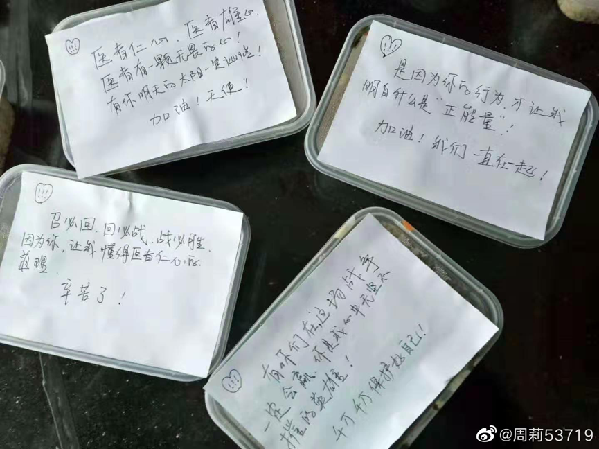 医者仁心，医者雄心
医者有一颗无畏的心！
有你明天的太阳一定灿烂！
加油！天使！
是因为你的行为，才让我
明白什么是“正能量”！
加油！我们一直在一起！
召必回，回必战，战必胜
因为你，让我懂得医者仁心的
真理
辛苦了！
有你们在这场战
一定会赢，你是我心中无
的英雄！
千万千万保护好自己！
@周莉53719